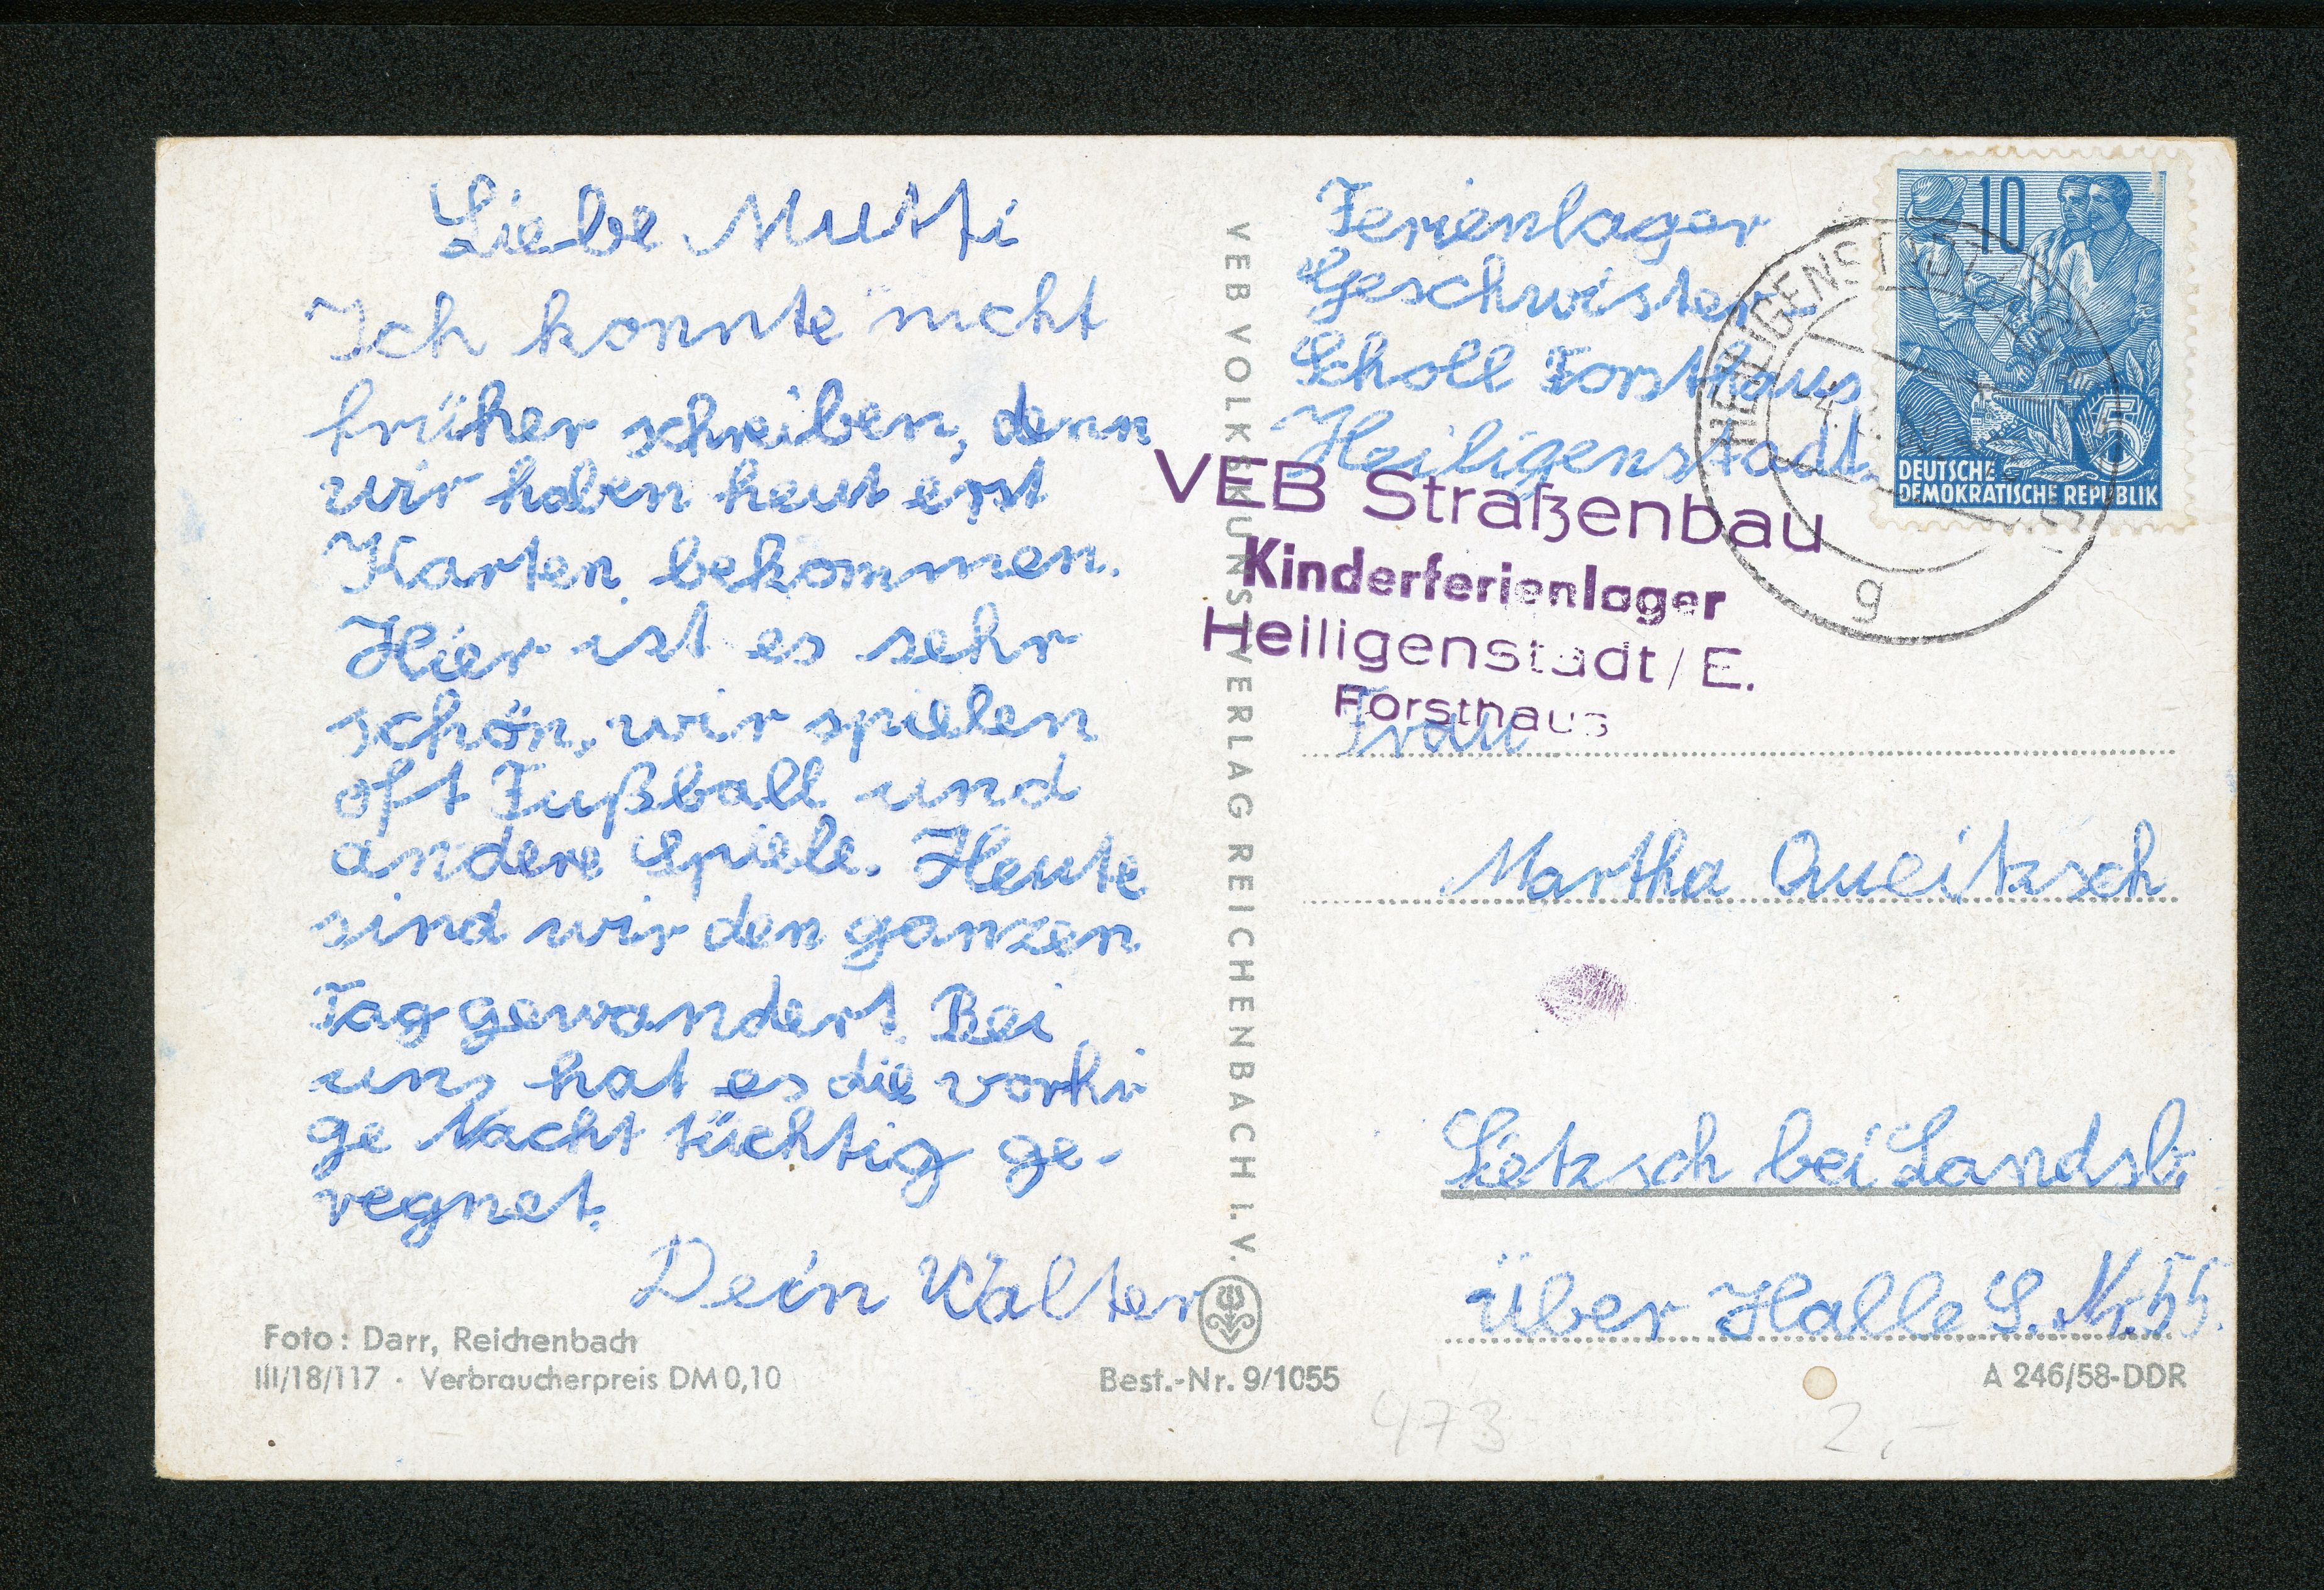 Liebe Mutti
Ich konnte nicht
früher schreiben, denn
wir haben heut erst
Karten bekommen.
Hier ist es sehr
schön, wir spielen
oft Fußball und
andere Spiele. Heute
sind wir den ganzen
Tag gewandert. Bei
uns hat es die vorhi
ge Nacht tüchtig ge-
regnet.
Dein Walter
Foto: Darr, Reichenbach
III/18/117 · Verbraucherpreis DM 0,10
Best.-Nr. 9/1055
VEB VOLKSKUNSTVERLAG REICHENBACH I. V.
Ferienlager
Geschwister
Scholl Forsthaus
Heiligenstadt.
10
5
DEUTSCHE
DEMOKRATISCHE REPUBLIK
HEILIGENSTADT
g
VEB Straßenbau
Kinderferienlager
Heiligenstadt / E.
Forsthaus
Frau
Martha Queitzsch
bei Landsb.
Über Halle S. Nr. 55.
A 246/58-DDR
473
2,-